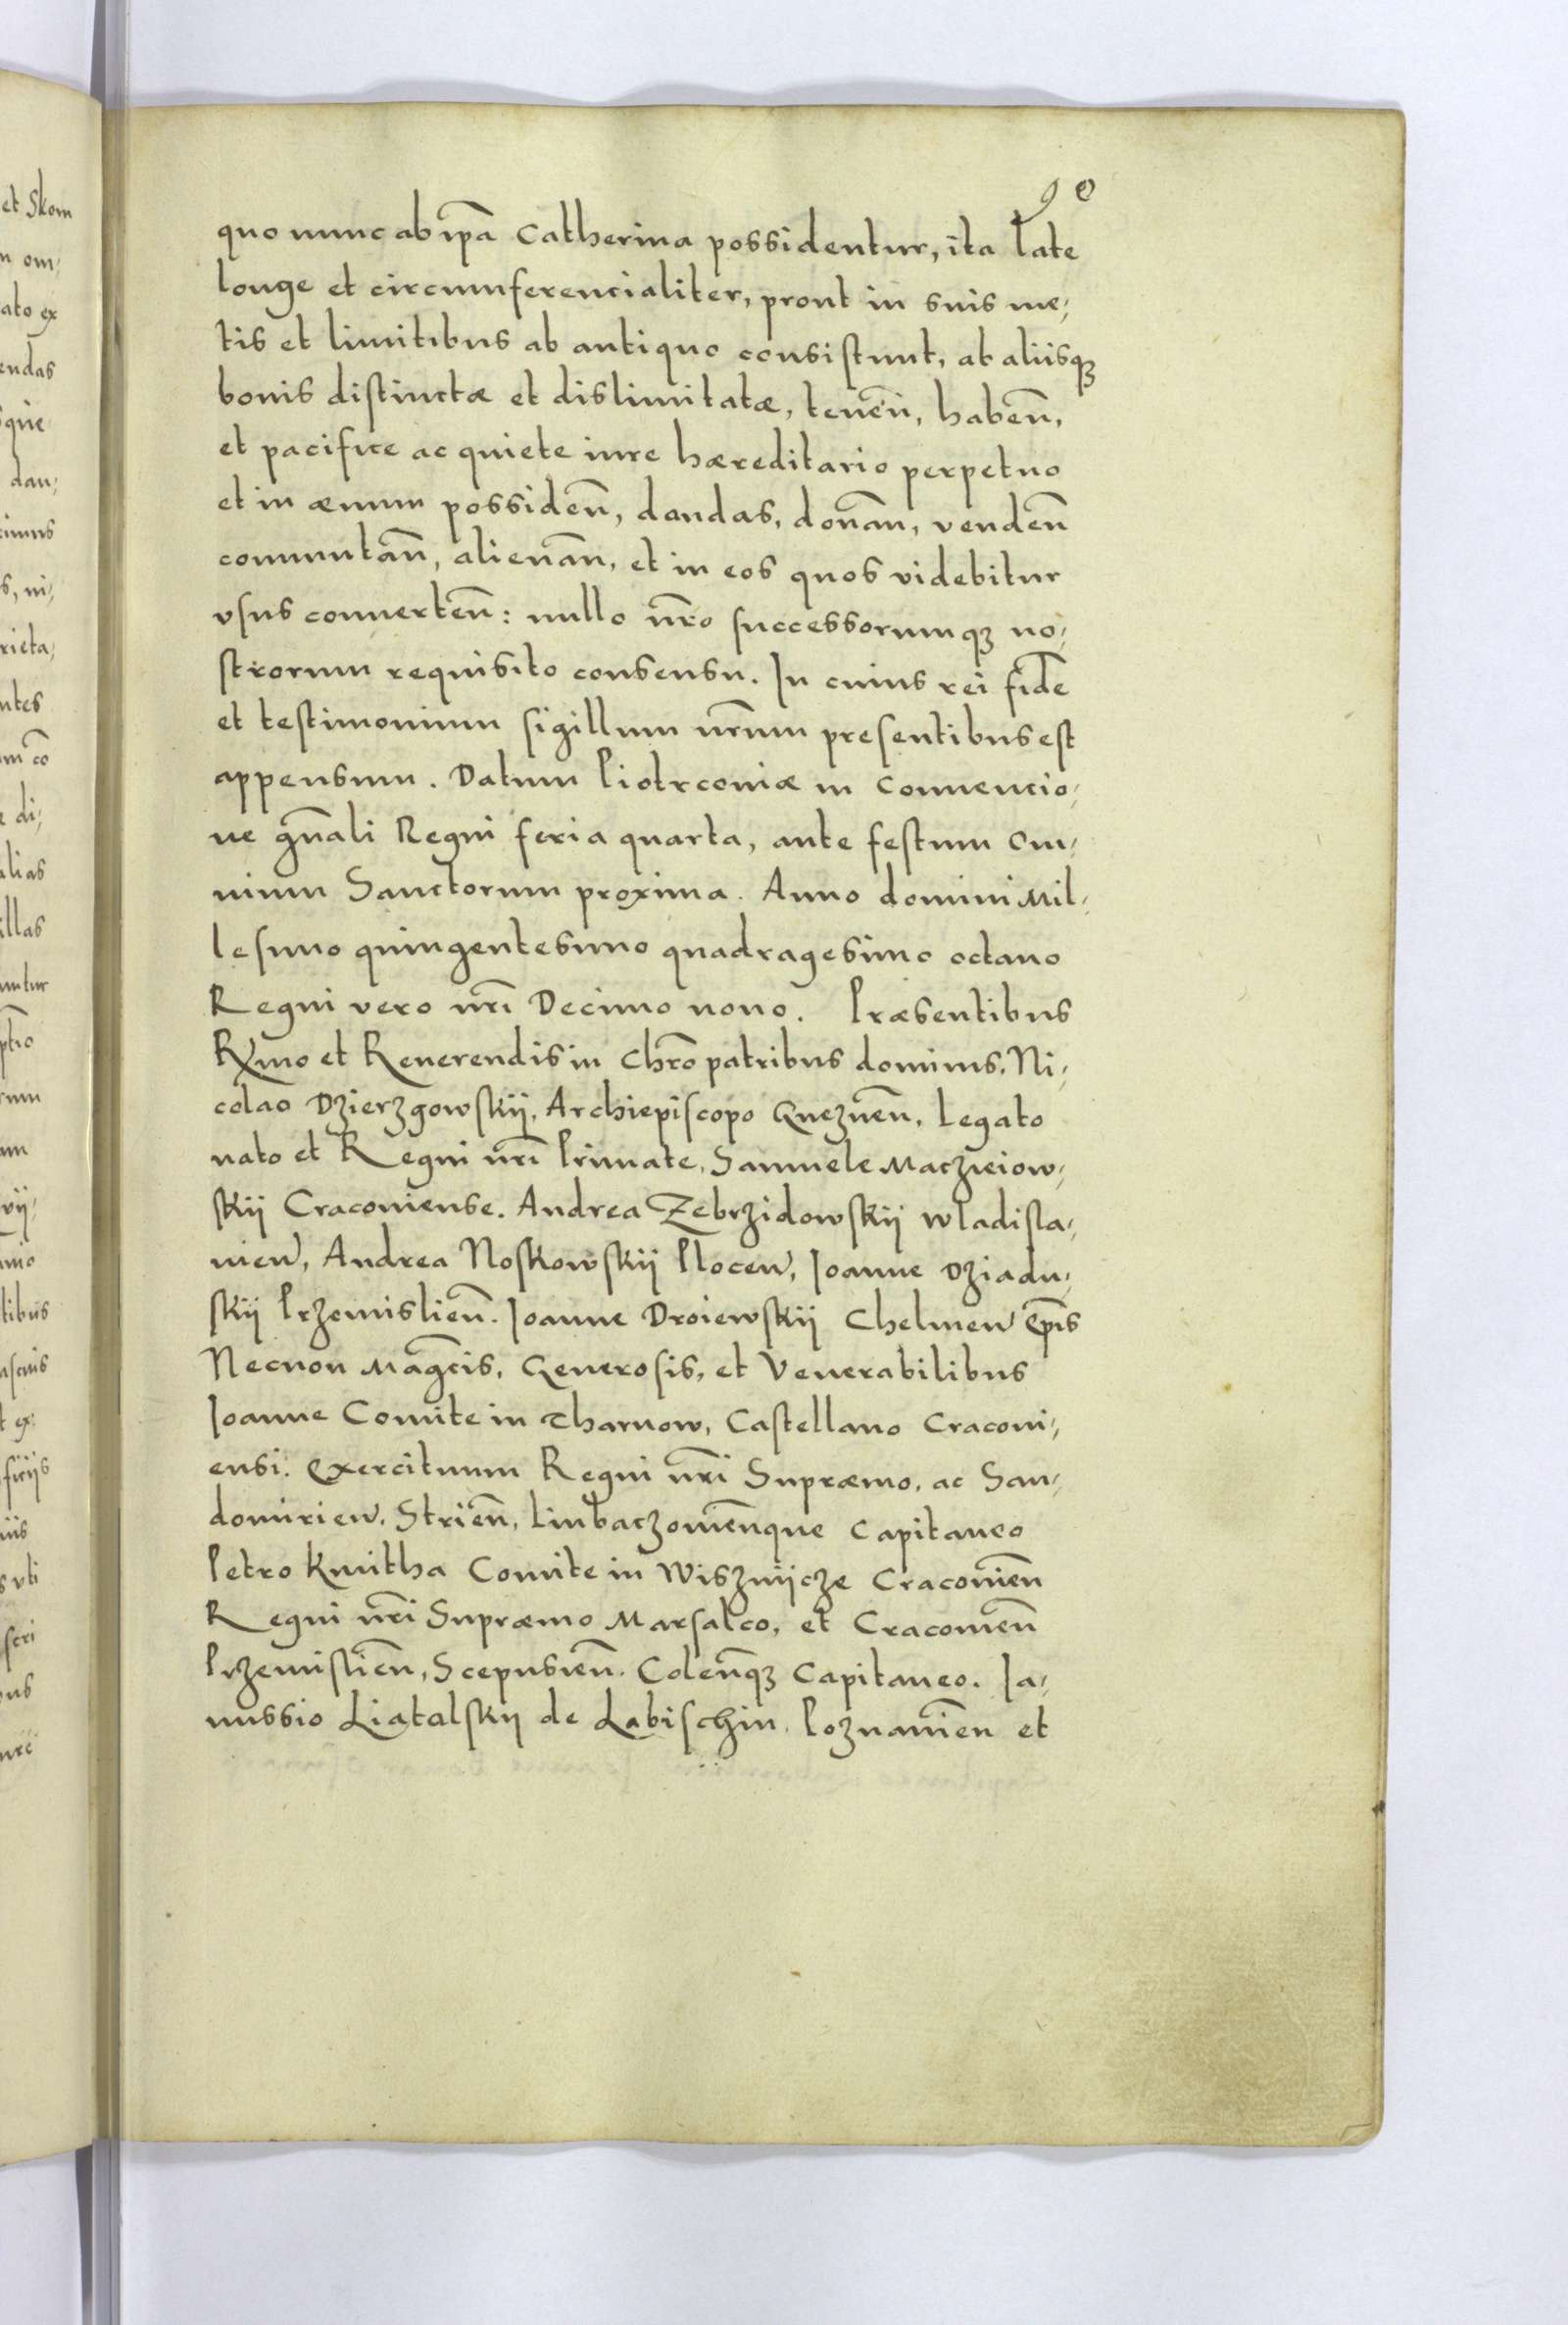 90
quo nunc ab ip̄a Catherina possidentur, ita late
longe et circumferencialiter, prout in suis me,
tis et limitibus ab antiquo consistunt, ab aliisqꝫ
bonis distinctæ et dislimitatæ, tenen̄, haben̄,
et pacifice ac quiete iure hæreditario perpetuo
et in æuum possiden̄, dandas, donan̄, venden̄
commutan̄, alienan̄, et in eos quos videbitur
vsus conuerten̄: nullo nr̄o successorumqꝫ no,
strorum requisito consensu. In cuius rei fidē
et testimonium sigillum nr̄um presentibus est
appensum. Datum Piotrcouiæ in Conuencio,
ne gn̄ali Regni feria quarta, ante festum Om,
nium Sanctorum proxima. Anno domini Mil,
lesimo quingentesimo quadragesimo octauo
Regni vero nr̄i Decimo nono. Præsentibus
Rx̄mo et Reuerendis in Chr̄o patribus dominis, Ni,
colao Dzierzgowskij, Archiepiscopo Gneznen̄, Legato
nato et Regni nr̄i Primate, Samuele Maczieiow,
skij Cracouiense. Andrea Zebrzidowskij Wladisla,
uien̄, Andrea Noskowskij Plocen̄, Joanne Dziadu,
skij Przemislien̄. Joanne Droiewskij Chelmen̄ Ep̄is
Necnon Mag̅cis, Generosis, et Venerabilibus
Joanne Comite in Tharnow, Castellano Cracoui,
ensi. Exercituum Regni nr̄i Supræmo, ac San,
domirien̄. Strien̄, Limbaczouien̄que Capitaneo
Petro Kmitha Comite in Wisznijcze Cracouien̄
Regni nr̄i Supræmo Marsalco, et Cracouien̄
Przemislien̄, Scepusien̄. Colen̄qꝫ Capitaneo. Ja,
nussio Liatalskij de Labischin, Poznanien̄ et